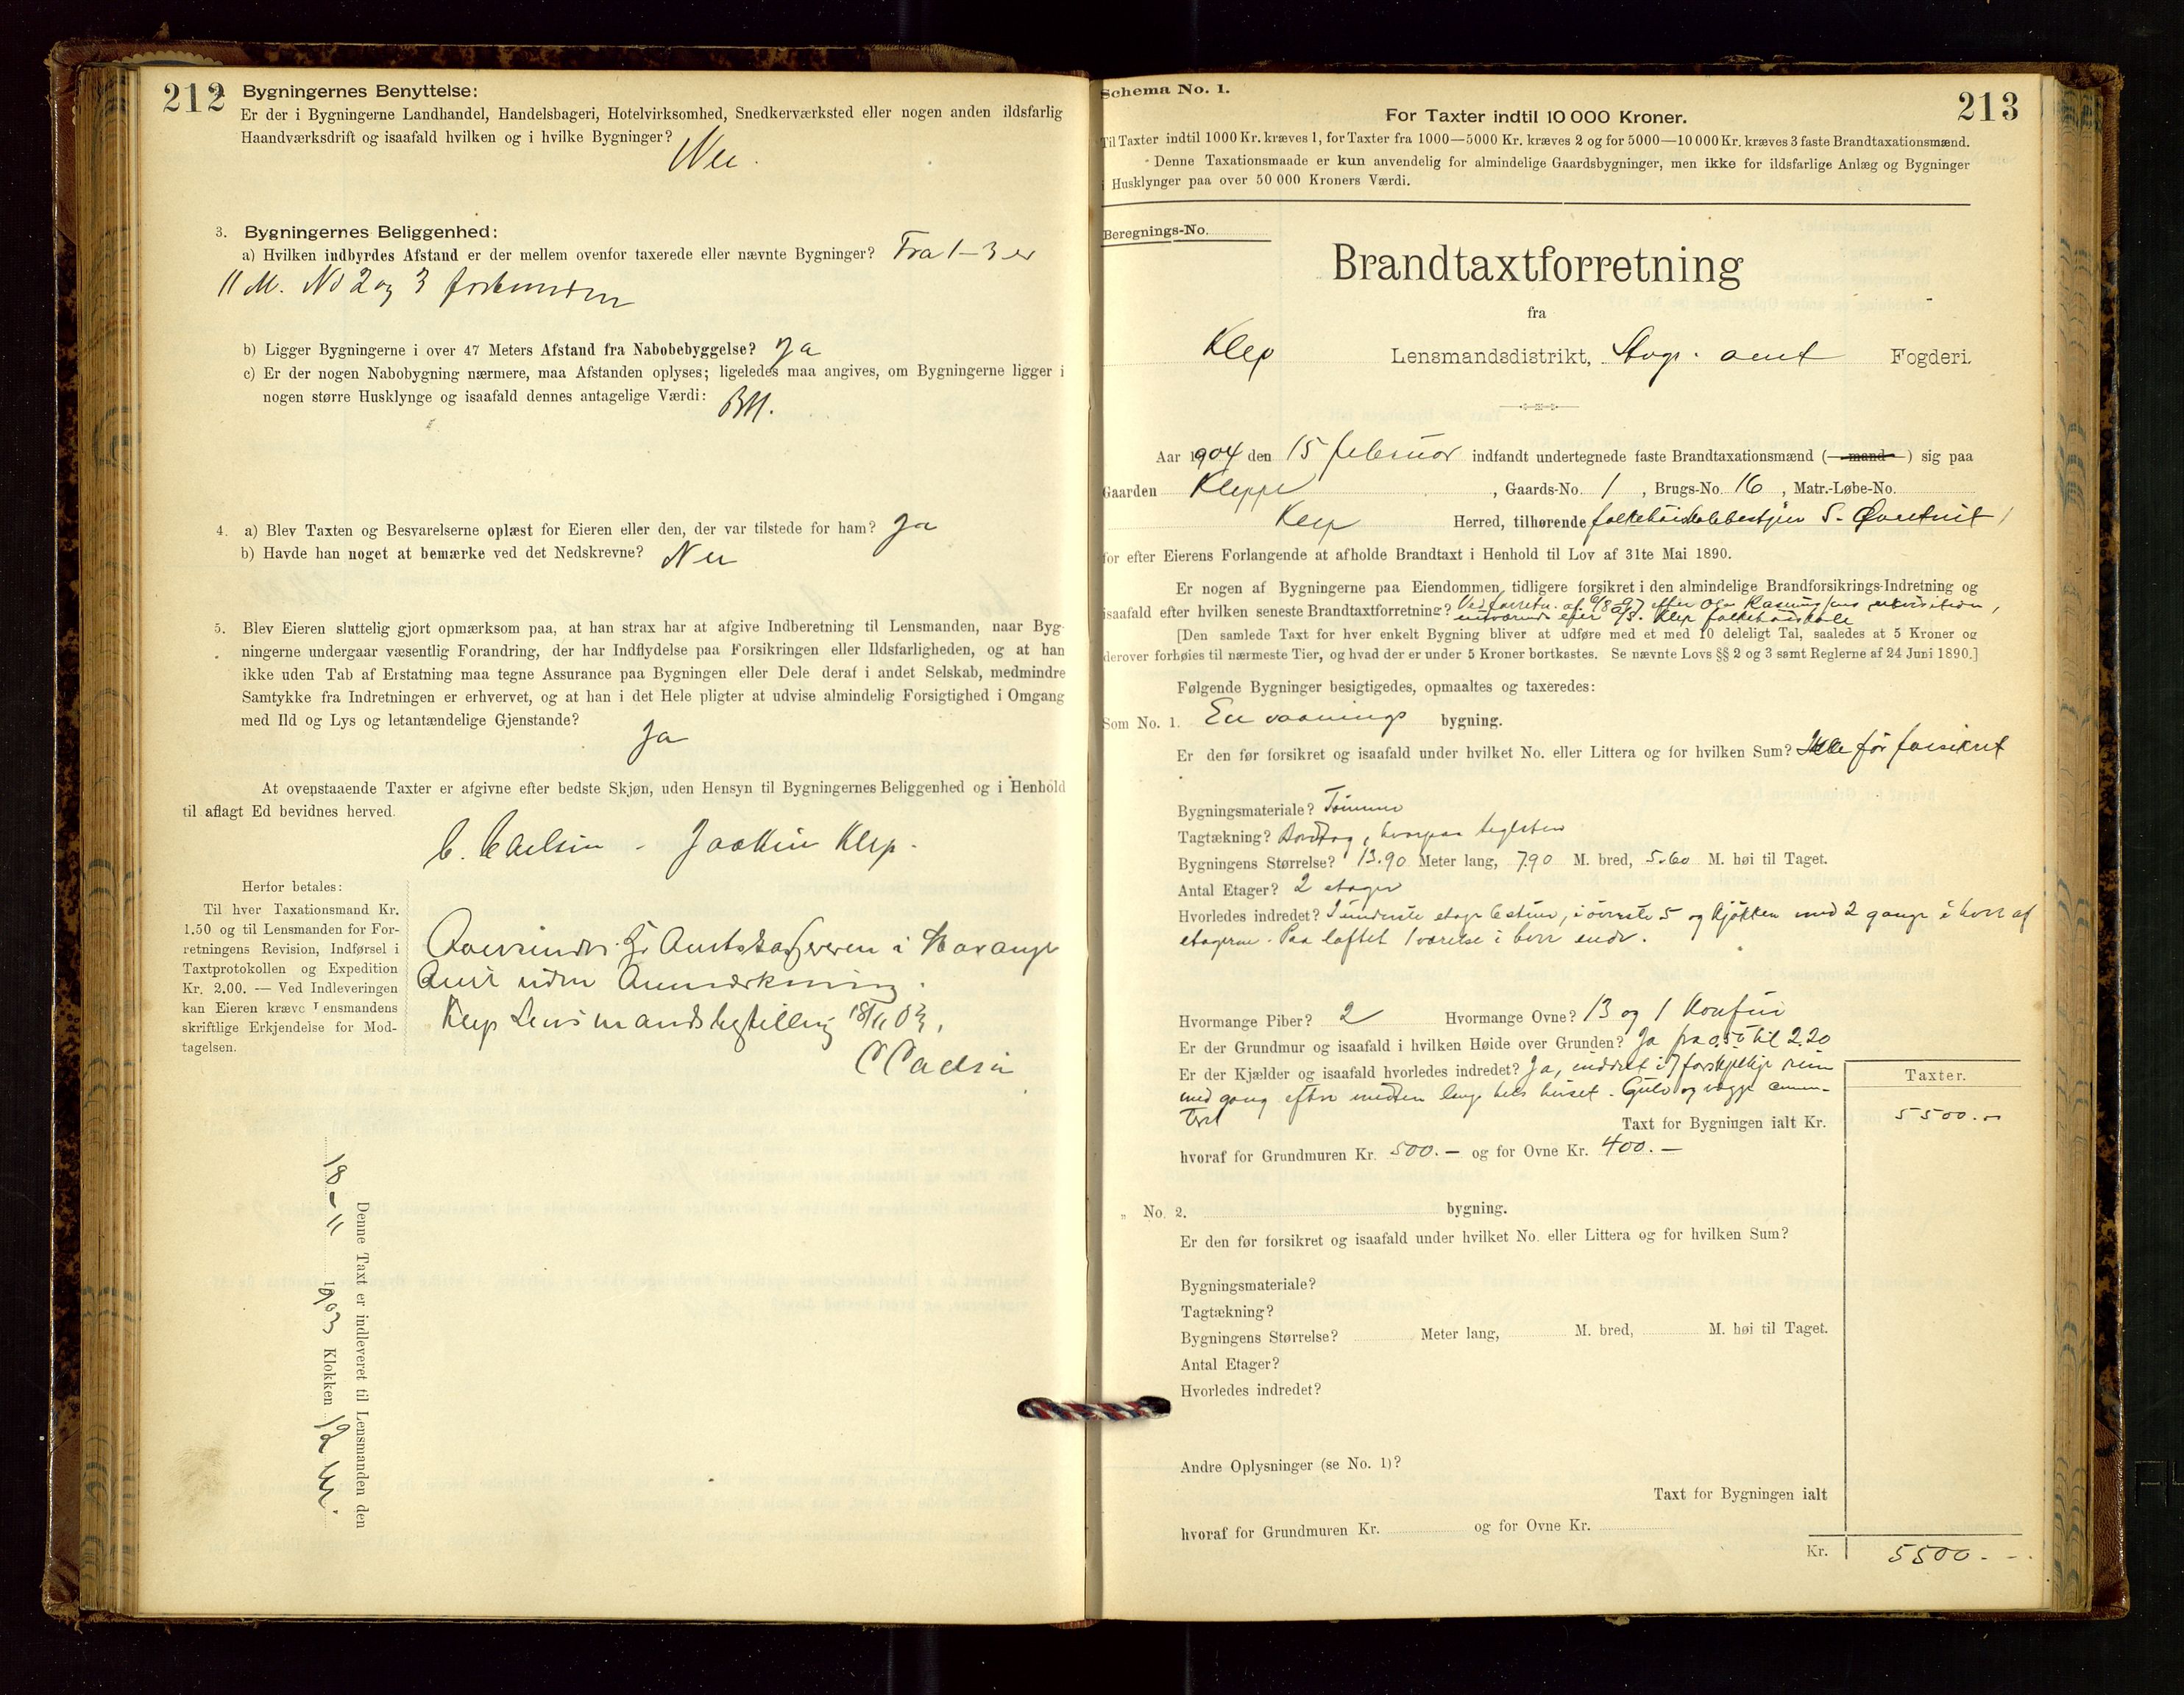 212
Bygningernes Benyttelse:
Er der i Bygningerne Landhandel, Handelsbageri, Hotelvirksomhed, Snedkerværksted eller nogen anden ildsfarlig
Haandværksdrift og isaafald hvilken og i hvilke Bygninger?
Nei.
3. Bygningernes Beliggenhed:
a) Hvilken indbyrdes Afstand er der mellem ovenfor taxerede eller nævnte Bygninger? Fra 1-3 er
11 M. No 2 og 3 forbunden
b) Ligger Bygningerne i over 47 Meters Afstand fra Nabobebyggelse? Ja
c) Er der nogen Nabobygning nærmere, maa Afstanden oplyses; ligeledes maa angives, om Bygningerne ligger i
nogen større Husklynge og isaafald dennes antagelige Værdi:
4. a) Blev Taxten og Besvarelserne oplæst for Eieren eller den, der var tilstede for ham? Ja
b) Havde han noget at bemærke ved det Nedskrevne? Nei
5. Blev Eieren sluttelig gjort opmærksom paa, at han strax har at afgive Indberetning til Lensmanden, naar Byg-
ningerne undergaar væsentlig Forandring, der har Indflydelse paa Forsikringen eller Ildsfarligheden, og at han
ikke uden Tab af Erstatning maa tegne Assurance paa Bygningen eller Dele deraf i andet Selskab, medmindre
Samtykke fra Indretningen er erhvervet, og at han i det Hele pligter at udvise almindelig Forsigtighed i Omgang
med Ild og Lys og letantændelige Gjenstande?
Ja
At ovenstaaende Taxter er afgivne efter bedste Skjøn, uden Hensyn til Bygningernes Beliggenhed og i Henhold
til aflagt Ed bevidnes herved.
C. Carlsen - Joakim Klep.
Herfor betales:
Til hver Taxationsmand Kr.
1.50 og til Lensmanden for For-
retningens Revision, Indførsel i
Taxtprotokollen og Expedition
Kr. 2.00. — Ved Indleveringen
kan Eieren kræve Lensmandens
skriftlige Erkjendelse for Mod-
tagelsen.
Oversendes Hr Amtskasereren i Stavanger
Amt uden Anmærkning.
Klep Lensmandsbestilling 18/11 03.
C Carlsen
Denne Taxt er indleveret til Lensmanden den
18-11 1903 Klokken 12 
Schema No. 1.
213
For Taxter indtil 10 000 Kroner.
Til Taxter indtil 1000 Kr. kræves 1, for Taxter fra 1000—5000 Kr. kræves 2 og for 5000—10 000 Kr. kræves 3 faste Brandtaxationsmænd.
Denne Taxationsmaade er kun anvendelig for almindelige Gaardsbygninger, men ikke for ildsfarlige Anlæg og Bygninger
i Husklynger paa over 50 000 Kroners Værdi.
Beregnings-No.
Brandtaxtforretning
fra
Klep Lensmandsdistrikt, Stvgr. amt Fogderi.
Aar 1904 den 15 februar indfandt undertegnede faste Brandtaxationsmænd (mand) sig paa
Gaarden Kleppe, Gaards-No. 1, Brugs-No. 16, Matr.-Løbe-No.
Klep Herred, tilhørende folkehøiskolebestyrer S.
for efter Eierens Forlangende at afholde Brandtaxt i Henhold til Lov af 31te Mai 1890.
Er nogen af Bygningerne paa Eiendommen tidligere forsikret i den almindelige Brandforsikrings-Indretning og
isaafald efter hvilken seneste Brandtaxtforretning? Ved forretn. af 6/8 97 efter Ola
nuværende eier af Klep folkehøiskole
[Den samlede Taxt for hver enkelt Bygning bliver at udføre med et med 10 deleligt Tal, saaledes at 5 Kroner og
derover forhøies til nærmeste Tier, og hvad der er under 5 Kroner bortkastes. Se nævnte Lovs §§ 2 og 3 samt Reglerne af 24 Juni 1890.]
Følgende Bygninger besigtigedes, opmaaltes og taxeredes:
Som No. 1. En vaanings bygning.
Er den før forsikret og isaafald under hvilket No. eller Littera og for hvilken Sum? Ikke før forsikret
Bygningsmateriale? Tømmer
Tagtækning? Bordtag, hvorpaa teglsten
Bygningens Størrelse? 13.90 Meter lang, 7.90 M. bred, 5.60 M. høi til Taget.
Antal Etager? 2 etager
Hvorledes indredet? I underste etage 6 stuer, i øverste 5 og kjøkken med 2 gange i hver af
etagerne. Paa loftet 1 værelse i hver ende.
Hvormange Piber? 2 Hvormange Ovne? 13 og 1 Komfur
Er der Grundmur og isaafald i hvilken Høide over Grunden? Ja fra 0.50 til 2.20
Er der Kjælder og isaafald hvorledes indredet? Ja, inddelt i 7 forskjellige rum
med gang efter midten langs hele huset. Gulv og vægge cemen-
teret
Taxter.
Taxt for Bygningen ialt Kr. 5500.-
hvoraf for Grundmuren Kr. 500.- og for Ovne Kr. 400.-
„ No. 2. bygning.
Er den før forsikret og isaafald under hvilket No. eller Littera og for hvilken Sum?
Bygningsmateriale?
Tagtækning?
Bygningens Størrelse? Meter lang, M. bred, M. høi til Taget.
Antal Etager?
Hvorledes indredet?
Andre Oplysninger (se No. 1)?
Taxt for Bygningen ialt
hvoraf for Grundmuren Kr. og for Ovne Kr.
Kr. 5500.-